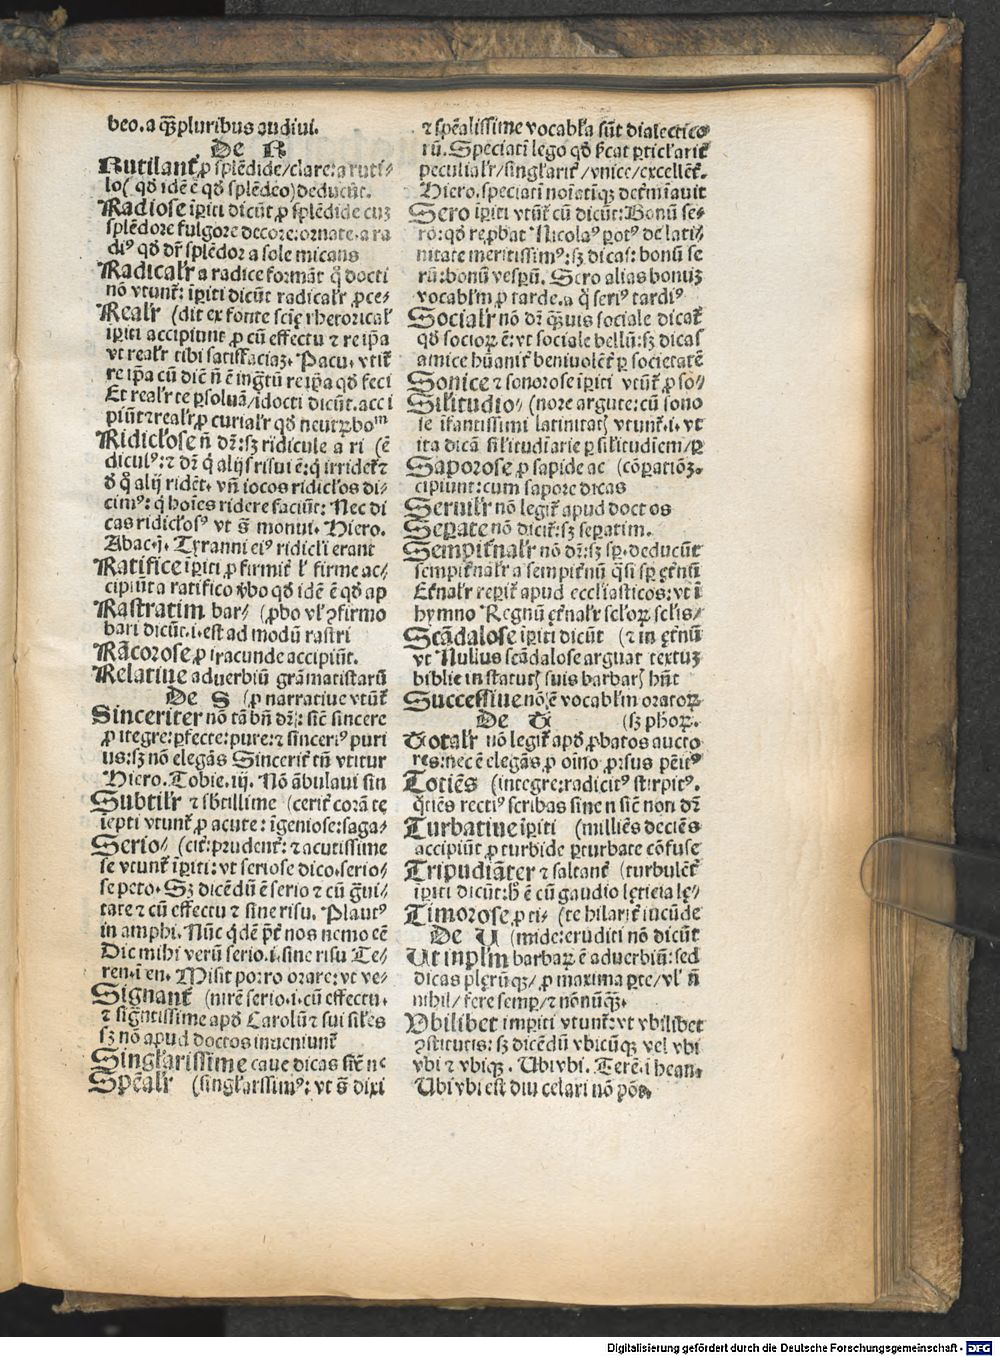 beo. a qͣ̄pluribus audiui.
De R
Rutilant᷑ ꝓ splēdide/clare: a ruti⸗
lo( qd̄ idē ē qd̄ splēdeo) deducūt.
Radiose iꝑiti dicūt ꝓ splēdide cuꝫ
splēdore fulgore decore: ornate. a ra
diꝰ qd̄ dr̄ splēdor a sole micans
Radicalr̄ a radice formāt q̄ docti
nō vtunt᷑: iꝑiti dicūt radicalr̄ ꝓce⸗
Realr̄ (dit ex fonte sciē rhetorical᷑
iꝑiti accipiunt ꝓ cū effectu ⁊ re ip̄a
vt realr̄ tibi satisfaciaꝫ. Pacu. vtit᷑
re ip̄a cū diē n̄ ē ingr̄tū re ip̄a qd̄ feci
Et realr̄ te ꝑsoluā/idocti dicūt. acci
piūt ⁊ realr̄ ꝓ curialr̄ qd̄ neutꝝ boᵐ
Ridiclose n̄ dr̄: sꝫ ridicule a ri (ē
diculꝰ: ⁊ dr̄ q̄ alijs risui ē: q̄ irridet᷑ ⁊
d̄ q̄ alij ridēt. vn̄ iocos ridiclos di⸗
cimꝰ: q̄ hoīes ridere faciūt: Nec di
cas ridiclosꝰ vt s̄ monui. Hiero.
Abac. j. Tyranni eiꝰ ridicli erant
Ratifice iꝑiti ꝓ firmit᷑ l᷑ firme ac⸗
cipiūt a ratifico v̄bo qd̄ idē ē qd̄ ap
Rastratim bar⸗ (ꝓbo vl᷑ ꝯfirmo
bari dicūt. i. est ad modū rastri
Rācorose ꝓ iracunde accipiūt.
Relatiue aduerbiū grāmatistarū
De S (ꝓ narratiue vtūt᷑
Sinceriter nō tā bn̄ dr̄: sic̄ sincere
ꝓ itegre: ꝑfecte: pure: ⁊ sinceriꝰ puri
us: sꝫ nō elegās Sincerit᷑ tn̄ vtitur
Hiero. Tobie. iij. Nō ābulaui sin
Subtilr̄ ⁊ sbtillime (cerit᷑ corā te
iepti vtunt᷑ ꝓ acute: īgeniose: saga⸗
Serio⸗ (cit᷑: prudent᷑: ⁊ acutissime
se vtunt᷑ īꝑiti: vt seriose dico. serio⸗
se peto. Sꝫ dicēdū ē serio ⁊ cū gr̄ui⸗
tate ⁊ cū effectu ⁊ sine risu. Plautꝰ
in amphi. Nūc q̄dē p̄t᷑ nos nemo eē
Dic mihi verū serio. i. sine risu Te⸗
ren. ī en. Misit porro orare: vt ve⸗
Signant᷑ (nirē serio. i. cū effectu.
⁊ sign̄tissime apd̄ Carolū ⁊ sui siles
sꝫ nō apud doctos inueniunt᷑
Singlarissime caue dicas sic̄ ne
Spēalr̄ (singlarissimꝰ: vt s̄ dixi
⁊ spēalissime vocabla sūt dialectico
rū. Speciatī lego qd̄ sc̄at ꝑticlarit᷑
peculialr̄/singlarit᷑/vnice/excellēt᷑.
Hiero. speciatī noīatīqꝫ det᷑miauit
Sero iꝑiti vtūt᷑ cū dicūt: Bonū se⸗
ro: qd̄ reꝓbat Nicolaꝰ ꝑotꝰ de lati⸗
nitate meritissimꝰ: sꝫ dicas: bonū se
rū: bonū vesꝑū. Sero alias bonuꝫ
vocablm̄ ꝓ tarde. a q̄ seriꝰ tardiꝰ
Socialr̄ nō dr̄ qͣ̄uis sociale dicat᷑
qd̄ socioꝝ ē: vt sociale bellū: sꝫ dicas
amice hūanit᷑ beniuolēt᷑ ꝑ societatē
Sonice ⁊ sonorose iꝑiti vtūt᷑ ꝓ so⸗
Silitudio⸗ (nore argute: cū sono
se ifantissimi latinitatꝭ vtunt᷑. i. vt
ita dicā silitudīarie ꝑ silitudīem/ꝑ
Saporose ꝓ sapide ac (cōꝑatiōꝫ.
cipiunt: cum sapore dicas
Seruilr̄ nō legit᷑ apud doctos
Seꝑate nō dicit᷑: sꝫ seꝑatim.
Sempit᷑nalr̄ nō dr̄: sꝫ sꝑ. deducūt
sempit᷑nalr̄ a sempit᷑nū q̄si sꝑ et᷑nū
Et᷑nalr̄ reꝑit᷑ apud eccl̄iasticos: vt ī
hymno Regnū et᷑nalr̄ scl̄oꝝ scl̄is⸗
Scādalose iꝑiti dicūt (⁊ in et᷑nū
vt Nullus scādalose arguat textuꝫ
biblie in statutꝭ suis barbarꝭ hn̄t
Successiue nō ē vocablm̄ oratoꝝ
De T (sꝫ ph̄oꝝ.
Totalr̄ nō legit᷑ apd̄ ꝓbatos aucto
res: nec ē elegās ꝓ oīno ꝓrsus penitꝰ
Totiēs (integre: radicitꝰ stirpitꝰ.
q̄tiēs rectiꝰ scribas sine n sic̄ non dr̄
Turbatiue iꝑiti (milliēs deciēs
accipiūt ꝓ turbide ꝑturbate cōfuse
Tripudiāter ⁊ saltant᷑ (turbulēt᷑
iꝑiti dicūt: h̄ ē cū gaudio letitia le⸗
Timorose ꝓ ti⸗ (te hilarit᷑ iucūde
De U (mide: eruditi nō dicūt
Ut inplm̄ barbaꝝ ē aduerbiū: sed
dicas plerūqꝫ/ ꝓ maxima ꝑte/ vl᷑ n̄
nihil/ fere semꝑ/ ⁊ nōnūqͣ̄.
Vbilibet imꝑiti vtunt᷑: vt vbilibet
ꝯstitutis: sꝫ dicēdū vbicūqꝫ vel vbi
vbi ⁊ vbiqꝫ. Ubivbi. Terē. i hean.
Ubi vbi est diu celari nō põt.
Digitalisierung gefördert durch die Deutsche Forschungsgemeinschaft - DFG